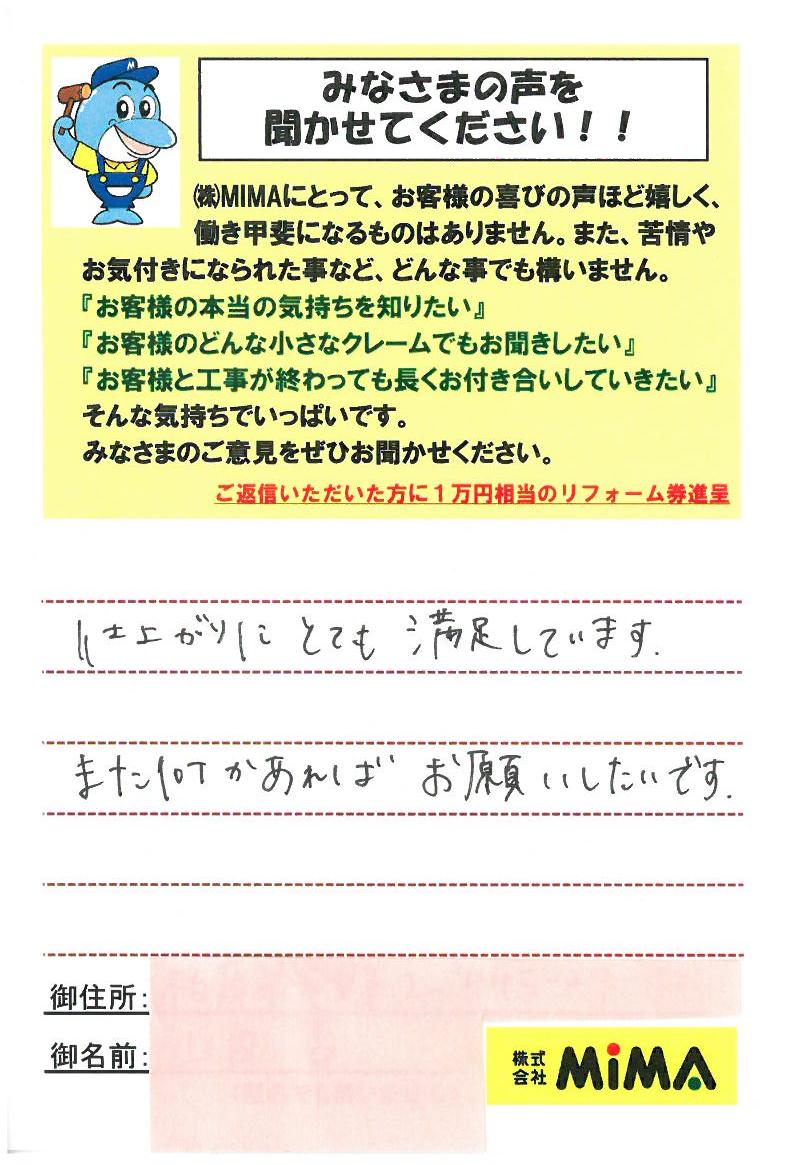 みなさまの声を
聞かせてください！！
㈱MIMAにとって、お客様の喜びの声ほど嬉しく、
働き甲斐になるものはありません。また、苦情や
お気付きになられた事など、どんな事でも構いません。
『お客様の本当の気持ちを知りたい』
『お客様のどんな小さなクレームでもお聞きしたい』
『お客様と工事が終わっても長くお付き合いしていきたい』
そんな気持ちでいっぱいです。
みなさまのご意見をぜひお聞かせください。
ご返信いただいた方に１万円相当のリフォーム券進呈
仕上がりにとても満足しています.
また何かあればお願いしたいです.
御住所:
御名前:
株式
会社 MiMA